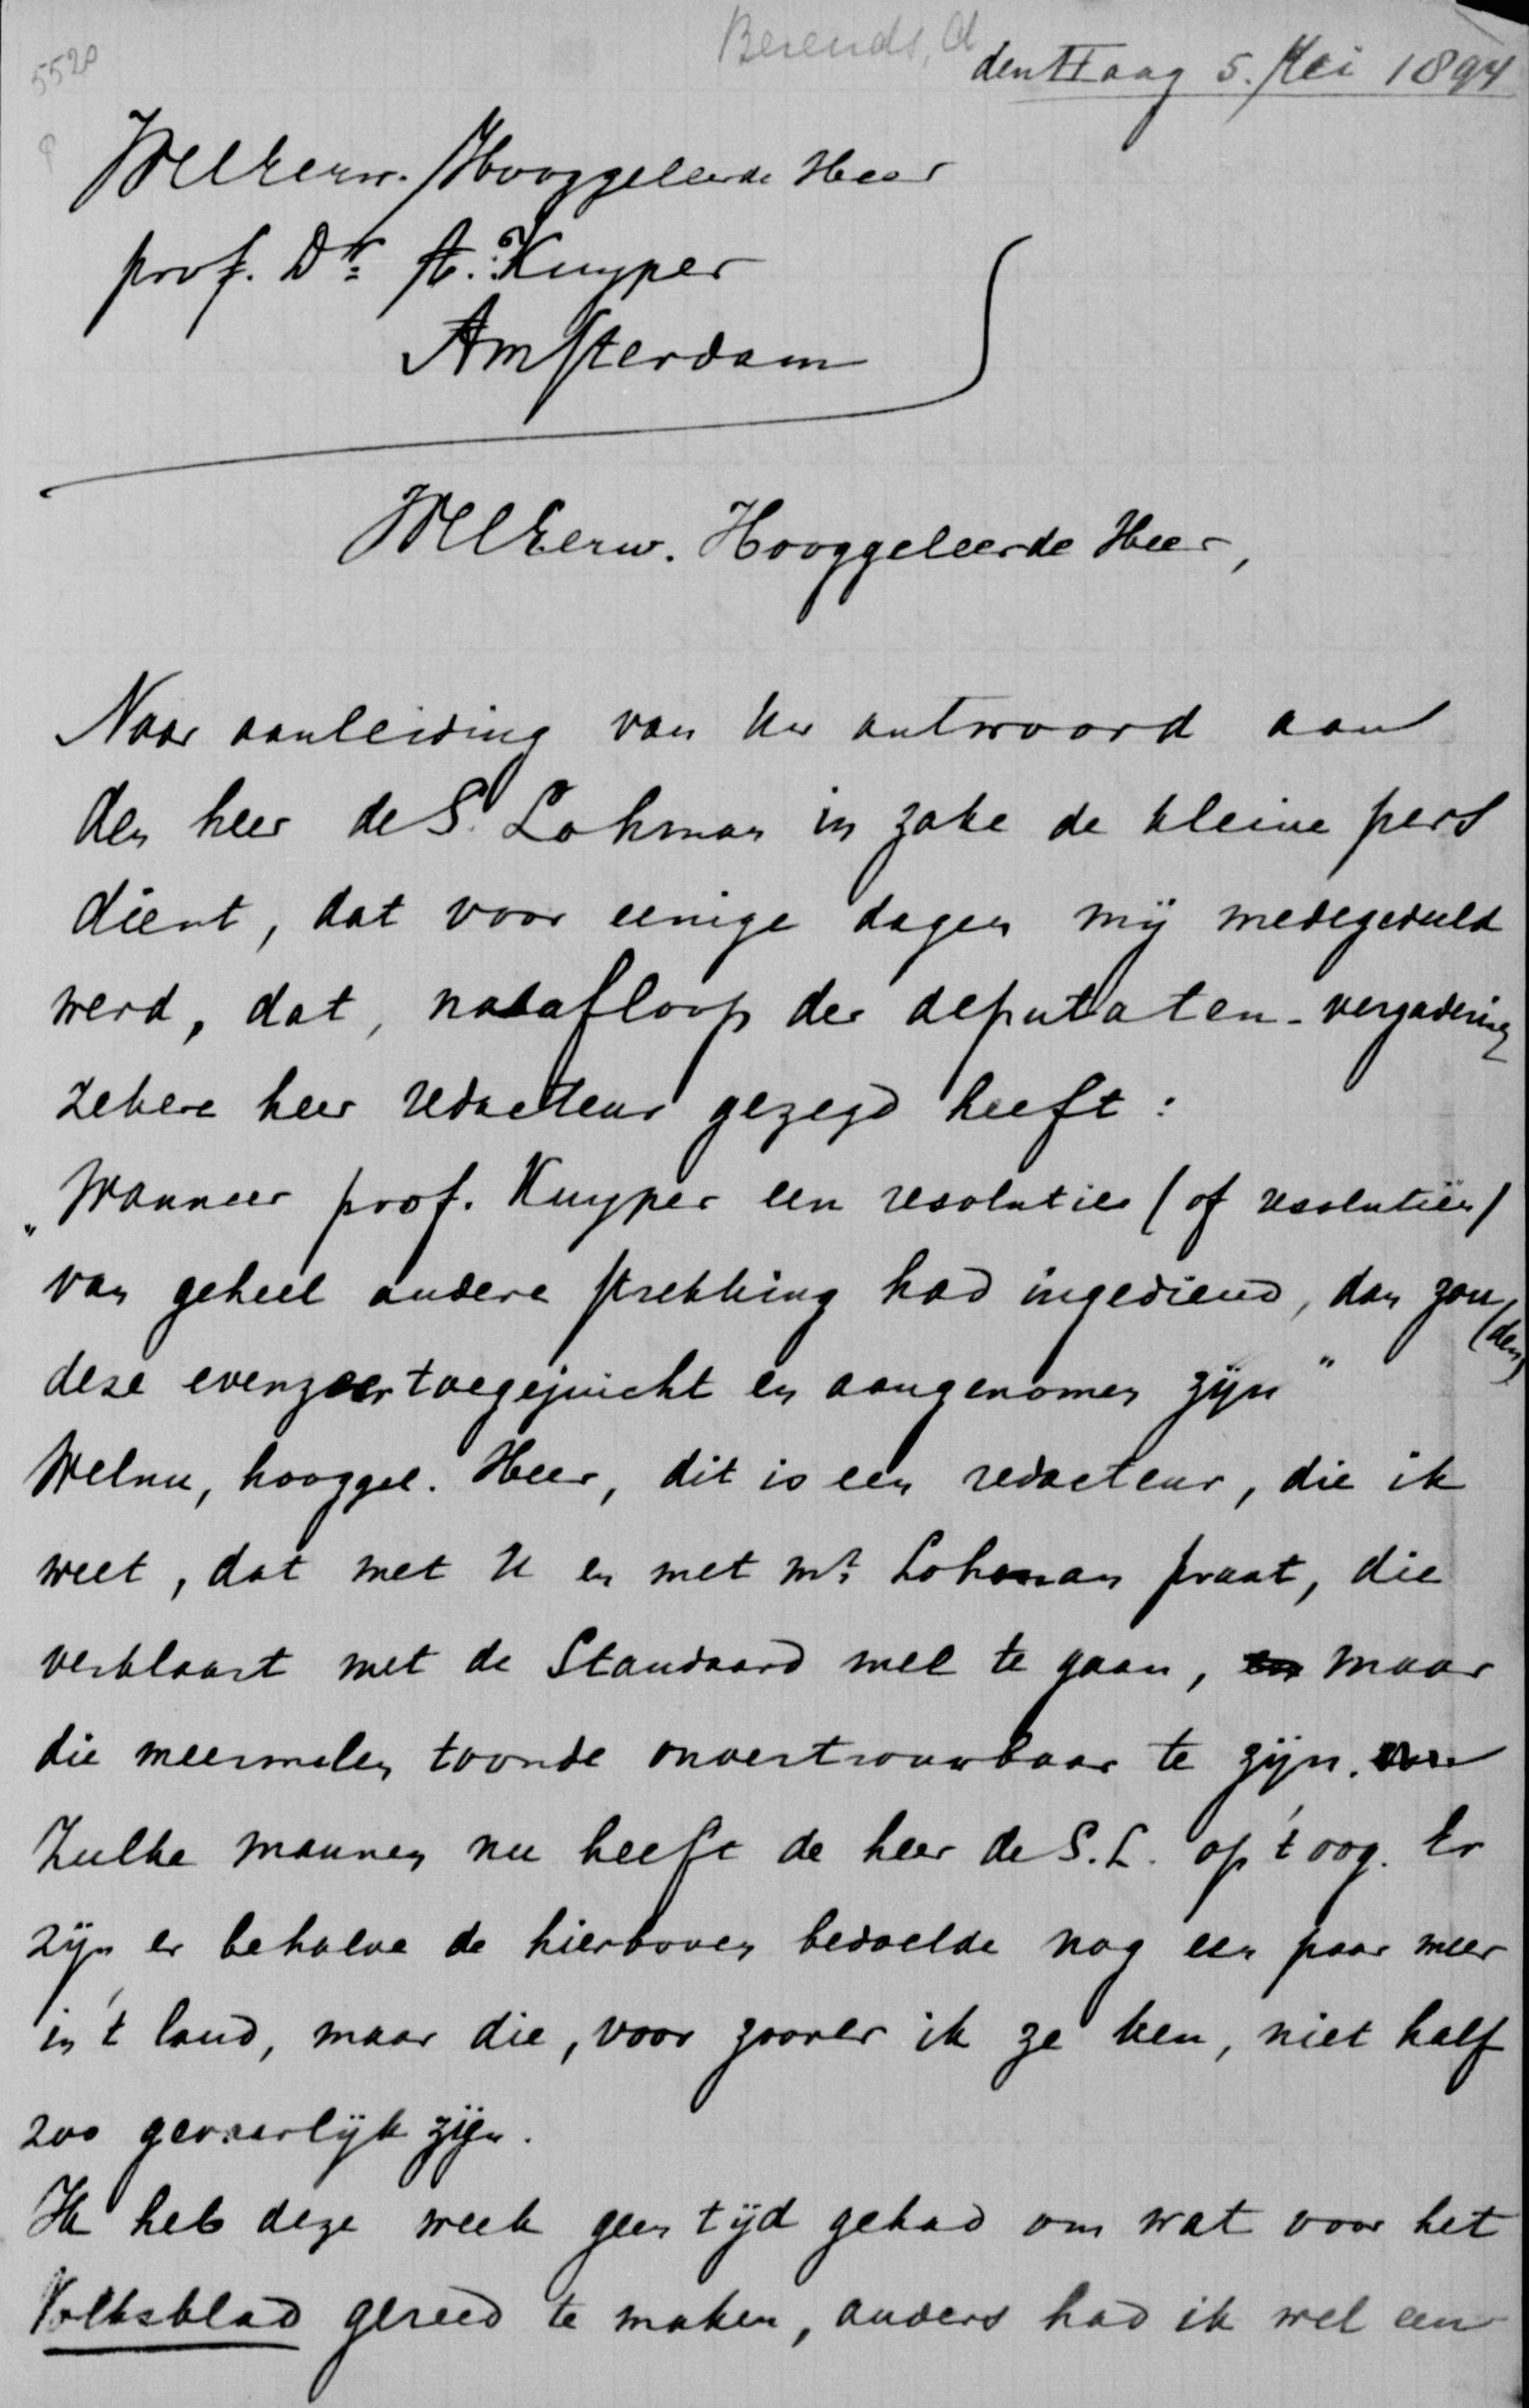 Berends, A
den Haag 5. Mei 1894
5520
WelEerw. Hooggeleerde Heer
prof. Dr. A. Kuyper
Amsterdam
WelEerw. Hooggeleerde Heer,
Naar aanleiding van Uw antwoord aan
den heer de S. Lohman in zake de kleine pers
dient, dat voor eenige dagen mij medegedeeld
werd, dat, na afloop der deputaten-vergadering
zekere heer redacteur gezegd heeft:
„Wanneer prof. Kuyper een resolutie (of resolutiën)
van geheel andere strekking had ingediend, dan zou
(den)
deze evenzeer toegejuicht en aangenomen zijn"
Welnu, hooggel. Heer, dit is een redacteur, die ik
weet, dat met U en met mr. Lohman praat, die
verklaart met de Standaard mee te gaan, maar
die meermalen toonde onvertrouwbaar te zijn.
Zulke mannen nu heeft de heer de S.L. op 't oog. Er
zijn er behalve de hierboven bedoelde nog een paar meer
in 't land, maar die, voor zoover ik ze ken, niet half
zoo gevaarlijk zijn.
Ik heb deze week geen tijd gehad om wat voor het
Volksblad gereed te maken, anders had ik wel een